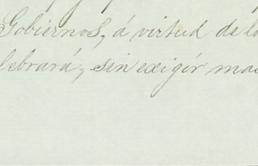 Gobiernos, á virtud de lo
lebrará, sin exigír mas